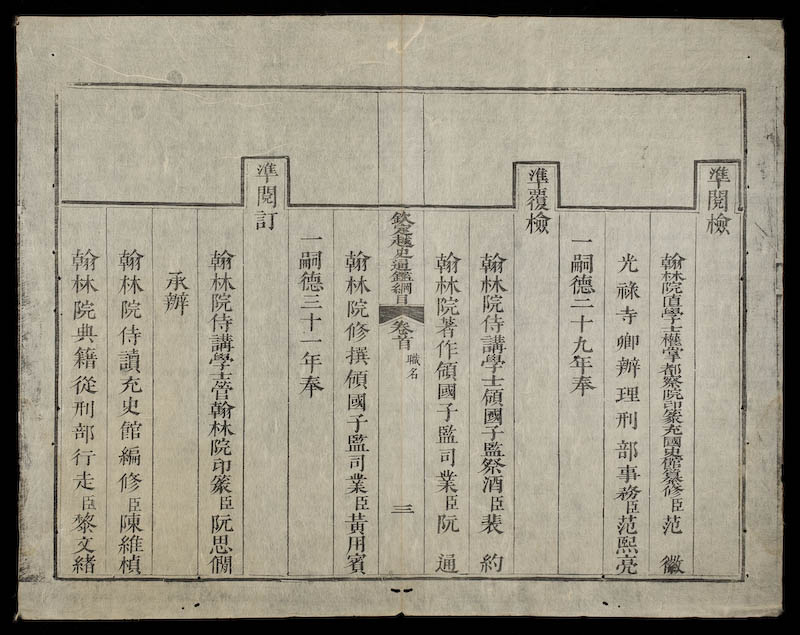 準閱檢
翰林院直學士權掌都察院印篆充國史館纂修臣范 徽
光祿寺卿辦理刑部事務臣范熙亮
一嗣德二十九年奉
準覆檢
翰林院侍講學士領國子監祭酒臣裴 約
翰林院著作領國子監司業臣阮 通
欽定越史通鑑綱目 卷首 職名 三
翰林院修撰領國子監司業臣黃用賓
一嗣德三十一年奉
準閱訂
翰林院侍講學士管翰林院印篆臣阮思僩
承辦
翰林院侍讀充史館編修臣陳維楨
翰林院典籍從刑部行走臣黎文緒